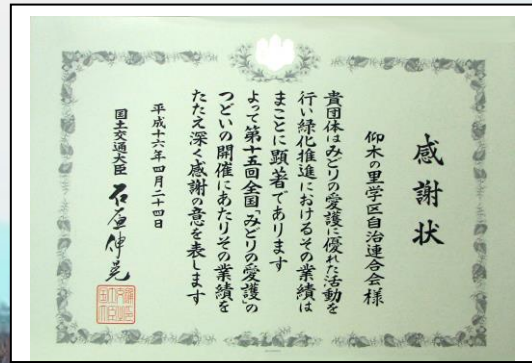 感謝状
仰木の里学区自治連合会様
貴団体はみどりの愛護に優れた活動を
行い緑化推進におけるその業績は
まことに顕著であります
よって第十五回全国「みどりの愛護」の
つどいの開催にあたりその業績を
たたえ深く感謝の意を表します
平成十六年四月二十四日
国土交通大臣 石原伸晃